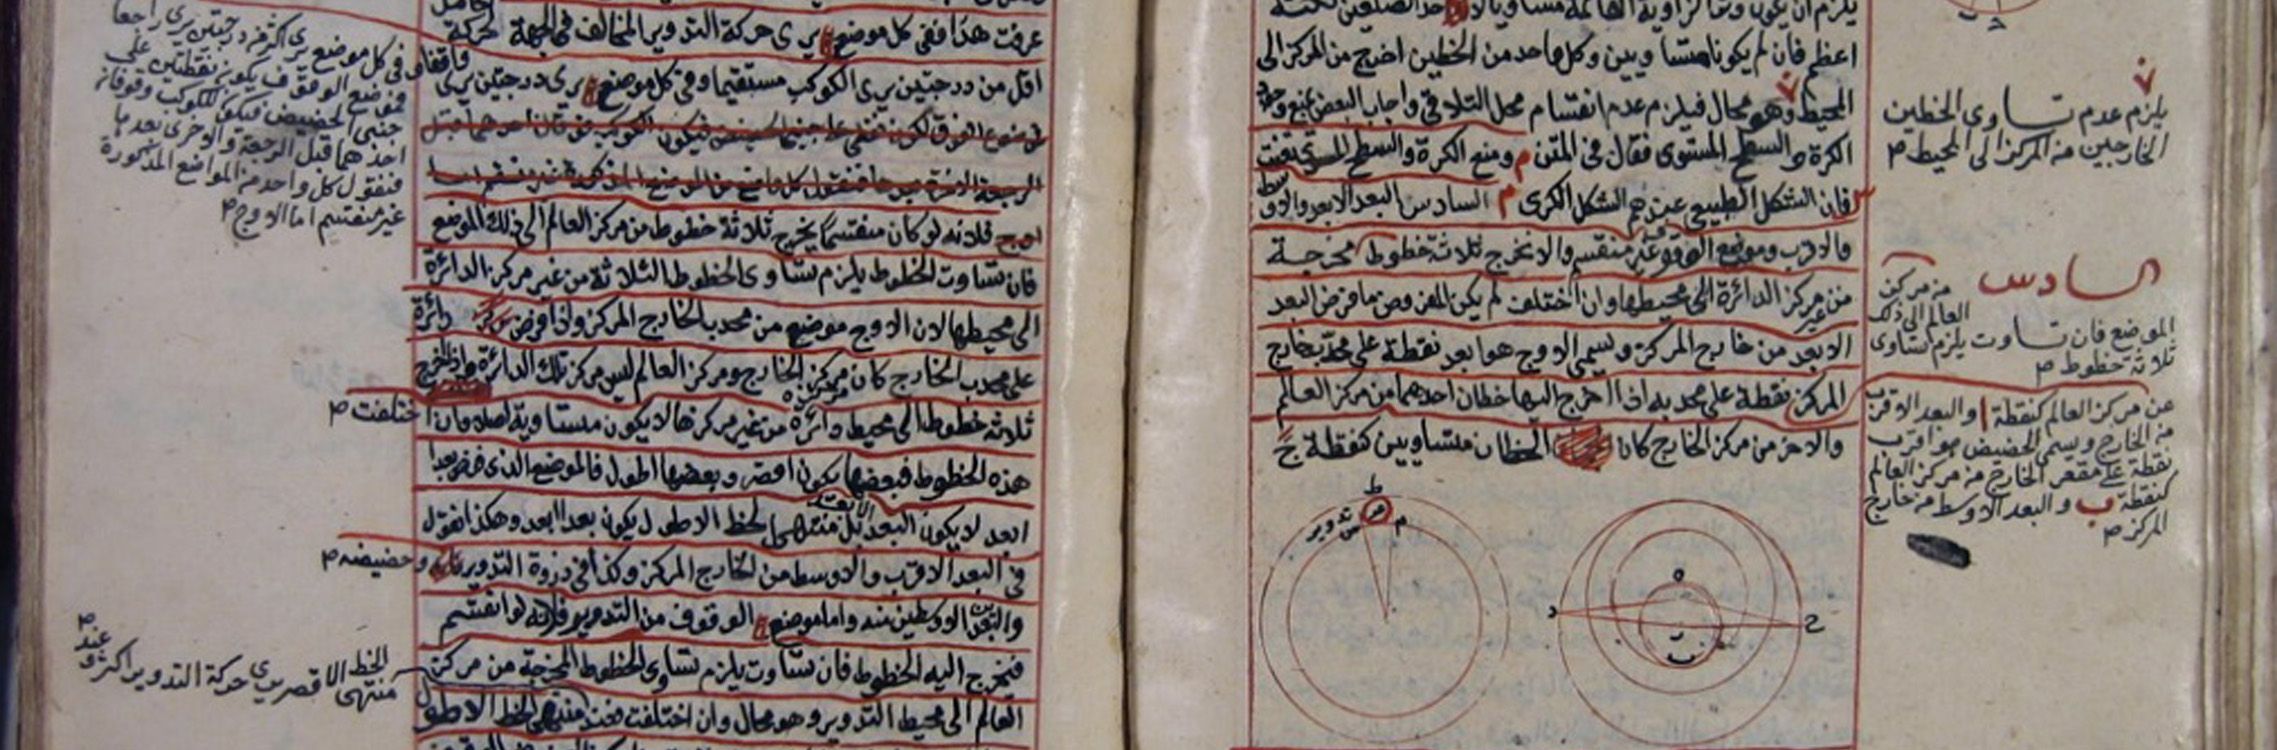 يلزم ان يكون وتر الزاوية القائمة مساويا لاحد الضلعين لكنه
اعظم فان لم يكونا متساويين وكل واحد من الخطين اخرج من المركز الى
المحيط وهو محال فيلزم عدم انقسام محل التلاقي واجاب البعض بمنع وجود
الكرة والسطح المستوى فقال في المتن ومنع الكرة والسطح المستوى
فان الشكل الطبيعي عندهم الشكل الكرى السادس البعد الابعد والاوسط
والاقرب وموضع الوقوف غير منقسم والا نخرج ثلاثة خطوط مخرجة
من غير مركز الدائرة الى محيطها وان اختلف لم يكن المفروض ما فرض البعد
الابعد من خارج المركز ويسمى الاوج هو ابعد نقطة على محدب خارج
المركز نقطة على محدبه اذا اخرج اليها خطان احدهما من مركز العالم
والاخر من مركز الخارج كانا الخطان متساويين كنقطة ج
يلزم عدم تساوى الخطين
الخارجين من المركز الى المحيط
السادس
من مركز
العالم الى ذلك
الموضع فان تساوت يلزم تساوى
ثلاثة خطوط
من مركز العالم كنقطة ا والبعد الاقرب
من الخارج ويسمى الحضيض هو اقرب
نقطة على مقعر الخارج من مركز العالم
كنقطة ب والبعد الاوسط من خارج
المركز
ط
تدوير
م
ه
د
ح
ر
ب
عرفت هذا ففي كل موضع يرى حركة التدوير المخالف في الجهة لحركة
اقل من درجتين يرى الكوكب مستقيما وفي كل موضع يرى درجتين يرى
اوج فلانه لو كان منقسما يخرج ثلاثة خطوط من مركز العالم الى ذلك الموضع
فان تساوت الخطوط يلزم تساوى الخطوط الثلاثة من غير مركز الدائرة
الى محيطها لان الاوج موضع من محدب الخارج المركز واذا فرض مركز دائرة
على محدب الخارج كان مركزه مركز الخارج ومركز العالم ليس مركز تلك الدائرة واذا اخرج
ثلاثة خطوط الى محيط دائرة من غير مركزها لا يكون متساوية اصلا وان اختلفت
هذه الخطوط فبعضها يكون اقصر وبعضها اطول فالموضع الذى فرض بعدا
ابعد لا يكون البعد الابعد بل منتهى الخط الاطول يكون بعدا ابعد وهكذا نقول
في البعد الاقرب والاوسط من الخارج المركز وكذا في ذروة التدوير وحضيضه
والبعدين الاوسطين منه واما موضع الوقوف من التدوير فلانه لو انقسم
فنخرج اليه الخطوط فان تساوت يلزم تساوى الخطوط المخرجة من مركز
العالم الى محيط التدوير وهو محال وان اختلفت فعند منتهى الخط الاطول
يرى اكثر من درجتين يرى راجعا
وفي كل موضع يرى
فموضع الوقوف يكون نقطتين على
جنبى الحضيض فيكون للكوكب وقوفان
احدهما قبل الرجعة والاخرى بعدها
فنقول كل واحد من المواضع المذكورة
غير منقسم اما الاوج
عند
منتهى الخط الاقصر يرى حركة التدوير اكثر و